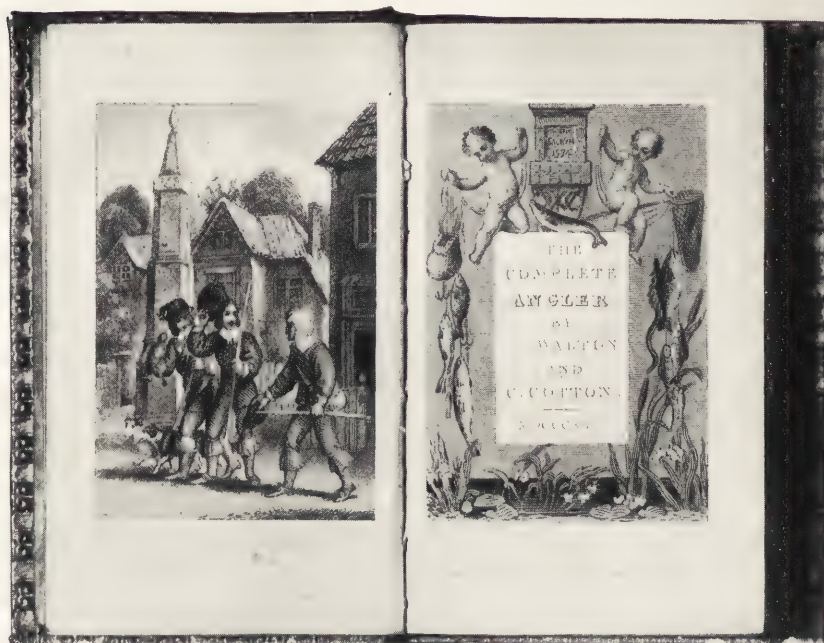 THE
COMPLETE
ANGLER
BY
WALTON
AND
C. COTTON.